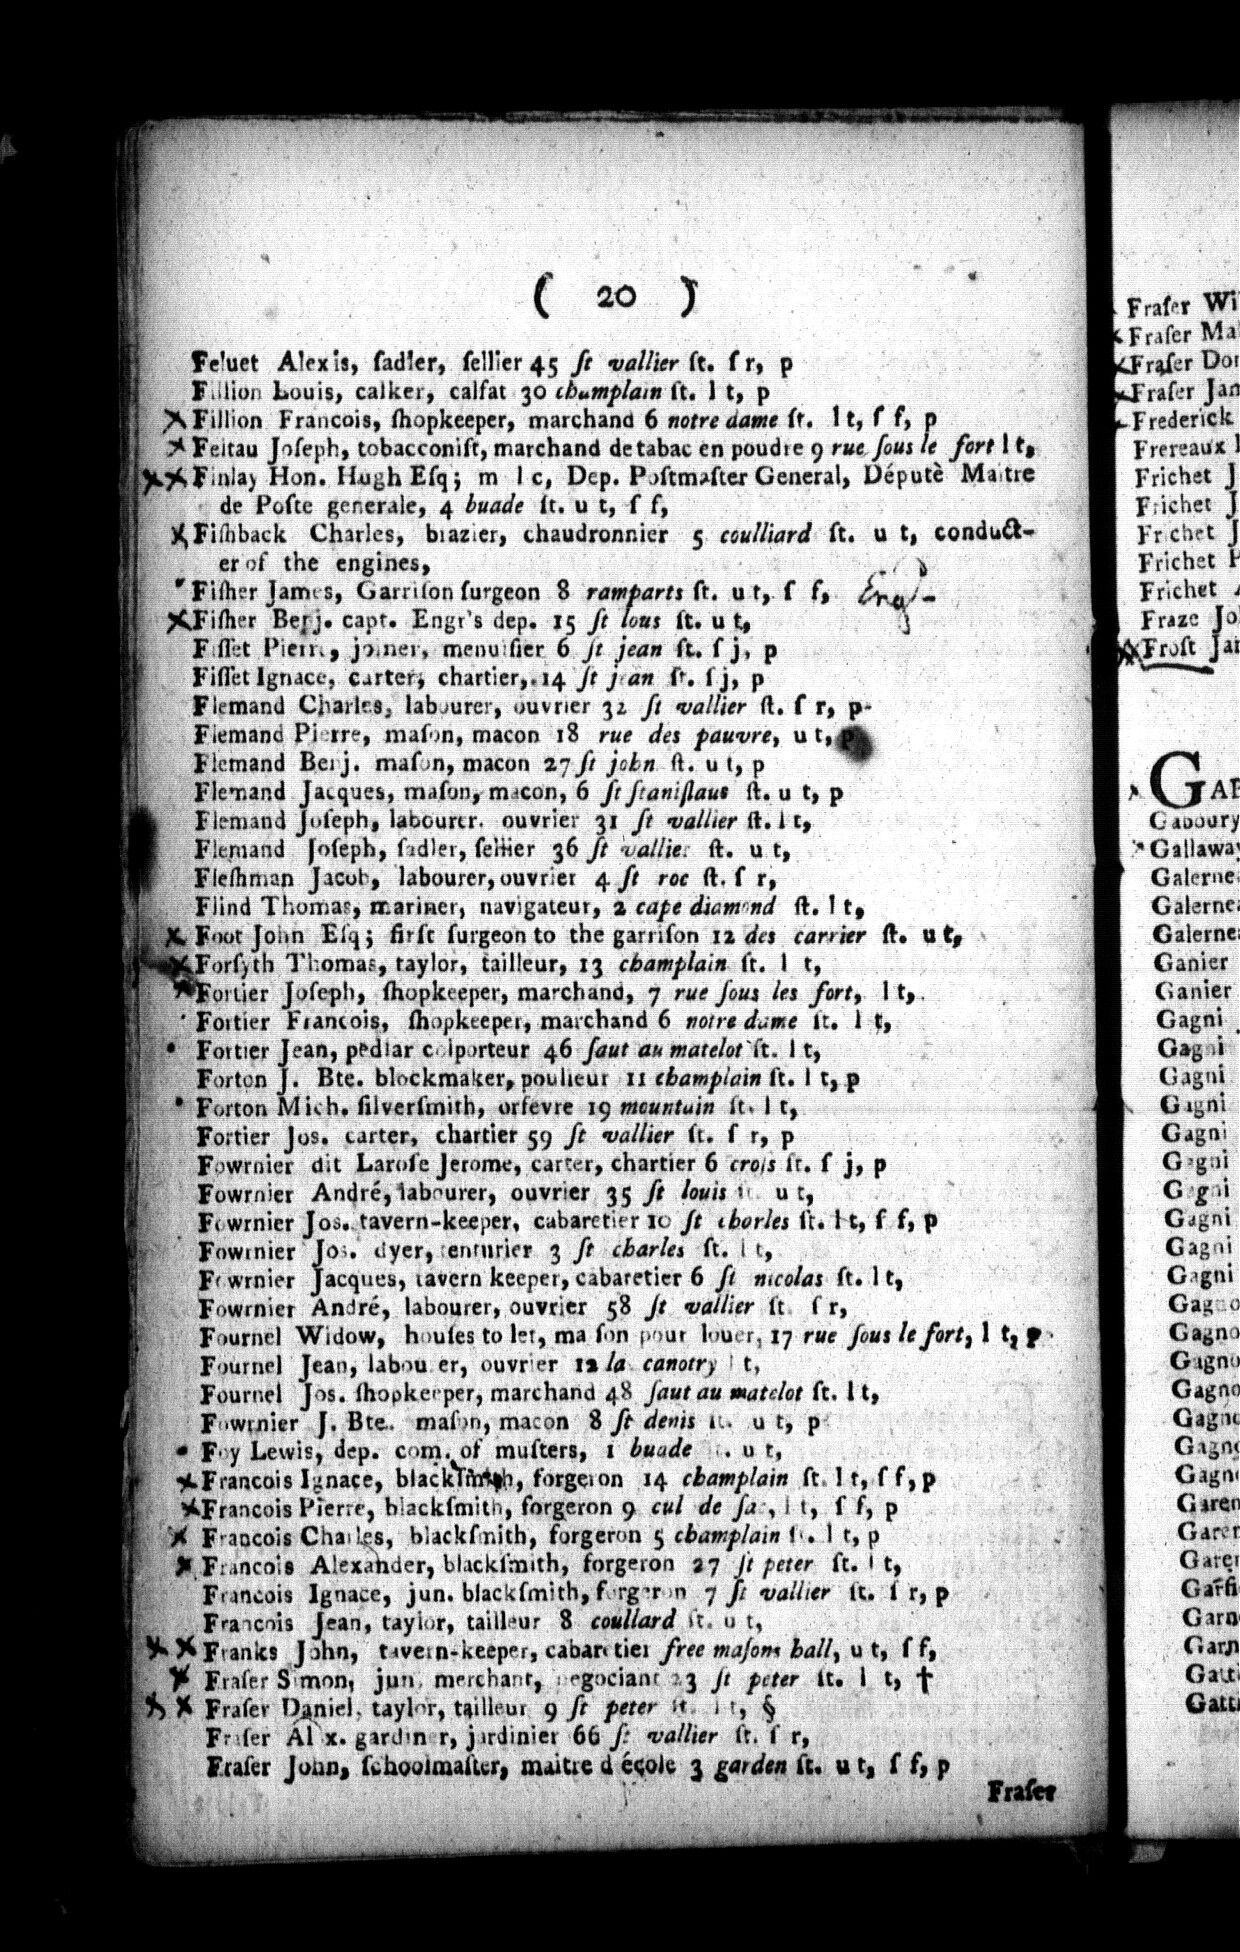 ( 20 )
Feluet Alexis, ſadler, ſellier 45 ſt vallier ſt. ſ r, p
Fillion Louis, calker, calfat 30 champlain ſt. l t, p
Fillion Francois, ſhopkeeper, marchand 6 notre dame ſt. l t, ſ f, p
Feltau Joſeph, tobacconiſt, marchand de tabac en poudre 9 rue ſous le fort l t,
Finlay Hon. Hugh Eſq; m l c, Dep. Poſtmaſter General, Députè Maitre
de Poſte generale, 4 buade ſt. u t, ſ f,
Fiſhback Charles, brazier, chaudronnier 5 coulliard ſt. u t, conduct-
er of the engines,
Fiſher James, Garriſon ſurgeon 8 ramparts ſt. u t, ſ f,
Fiſher Benj. capt. Engr's dep. 15 ſt lous ſt. u t,
Fiſſet Pierre, joiner, menuiſier 6 ſt jean ſt. ſ j, p
Fiſſet Ignace, carter, chartier, 14 ſt jean ſt. ſ j, p
Flemand Charles, labourer, ouvrier 32 ſt vallier ſt. ſ r, p
Flemand Pierre, maſon, macon 18 rue des pauvre, u t, p
Flemand Benj. maſon, macon 27 ſt john ſt. u t, p
Flemand Jacques, maſon, macon, 6 ſt ſtaniſlaus ſt. u t, p
Flemand Joſeph, labourer. ouvrier 31 ſt vallier ſt. l t,
Flemand Joſeph, ſadler, ſellier 36 ſt vallier ſt. u t,
Fleſhman Jacob, labourer, ouvrier 4 ſt roc ſt. ſ r,
Flind Thomas, mariner, navigateur, 2 cape diamond ſt. l t,
Foot John Eſq; firſt ſurgeon to the garriſon 12 des carrier ſt. u t,
Forſyth Thomas, taylor, tailleur, 13 champlain ſt. l t,
Fortier Joſeph, ſhopkeeper, marchand, 7 rue ſous les fort, l t,
Fortier Francois, ſhopkeeper, marchand 6 notre dame ſt. l t,
Fortier Jean, pedlar colporteur 46 ſaut au matelot ſt. l t,
Forton J. Bte. blockmaker, poulieur 11 champlain ſt. l t, p
Forton Mich. ſilverſmith, orfevre 19 mountain ſt. l t,
Fortier Jos. carter, chartier 59 ſt vallier ſt. ſ r, p
Fowrnier dit Laroſe Jerome, carter, chartier 6 crois ſt. ſ j, p
Fowrnier André, labourer, ouvrier 35 ſt louis ſt. u t,
Fowrnier Jos. tavern-keeper, cabaretier 10 ſt charles ſt. l t, ſ f, p
Fowrnier Jos. dyer, tenturier 3 ſt charles ſt. l t,
Fowrnier Jacques, tavern keeper, cabaretier 6 ſt nicolas ſt. l t,
Fowrnier André, labourer, ouvrier 58 ſt vallier ſt. ſ r,
Fournel Widow, houſes to let, maiſon pour louer, 17 rue ſous le fort, l t, p
Fournel Jean, labourer, ouvrier 12 la canotry l t,
Fournel Jos. ſhopkeeper, marchand 48 ſaut au matelot ſt. l t,
Fowrnier J. Bte. maſon, macon 8 ſt denis ſt. u t, p
Foy Lewis, dep. com. of muſters, 1 buade ſt. u t,
Francois Ignace, blackſmith, forgeron 14 champlain ſt. l t, ſ f, p
Francois Pierre, blackſmith, forgeron 9 cul de ſac, l t, ſ f, p
Francois Charles, blackſmith, forgeron 5 champlain ſt. l t, p
Francois Alexander, blackſmith, forgeron 27 ſt peter ſt. l t,
Francois Ignace, jun. blackſmith, forgeron 7 ſt vallier ſt. ſ r, p
Francois Jean, taylor, tailleur 8 coullard ſt. u t,
Franks John, tavern-keeper, cabaretier free maſons hall, u t, ſ f,
Fraſer Simon, jun. merchant, negociant 23 ſt peter ſt. l t, †
Fraſer Daniel, taylor, tailleur 9 ſt peter ſt. l t, §
Fraſer Alex. gardiner, jardinier 66 ſt vallier ſt. ſ r,
Fraſer John, ſchoolmaſter, maitre d école 3 garden ſt. u t, ſ f, p
Fraſer
Fraſer Wil
Fraſer Mal
Fraſer Don
Fraſer Jam
Frederick
Frereaux
Frichet J
Frichet J
Frichet J
Frichet P
Frichet
Fraze Jo
Froſt Jam
GAB
Gaboury
Gallaway
Galernea
Galernea
Galernea
Ganier
Ganier
Gagni
Gagni
Gagni
Gagni
Gagni
Gagni
Gagni
Gagni
Gagni
Gagni
Gagno
Gagno
Gagno
Gagno
Gagno
Gagno
Gagno
Garen
Garen
Garen
Garſi
Garn
Garn
Gatti
Gatti